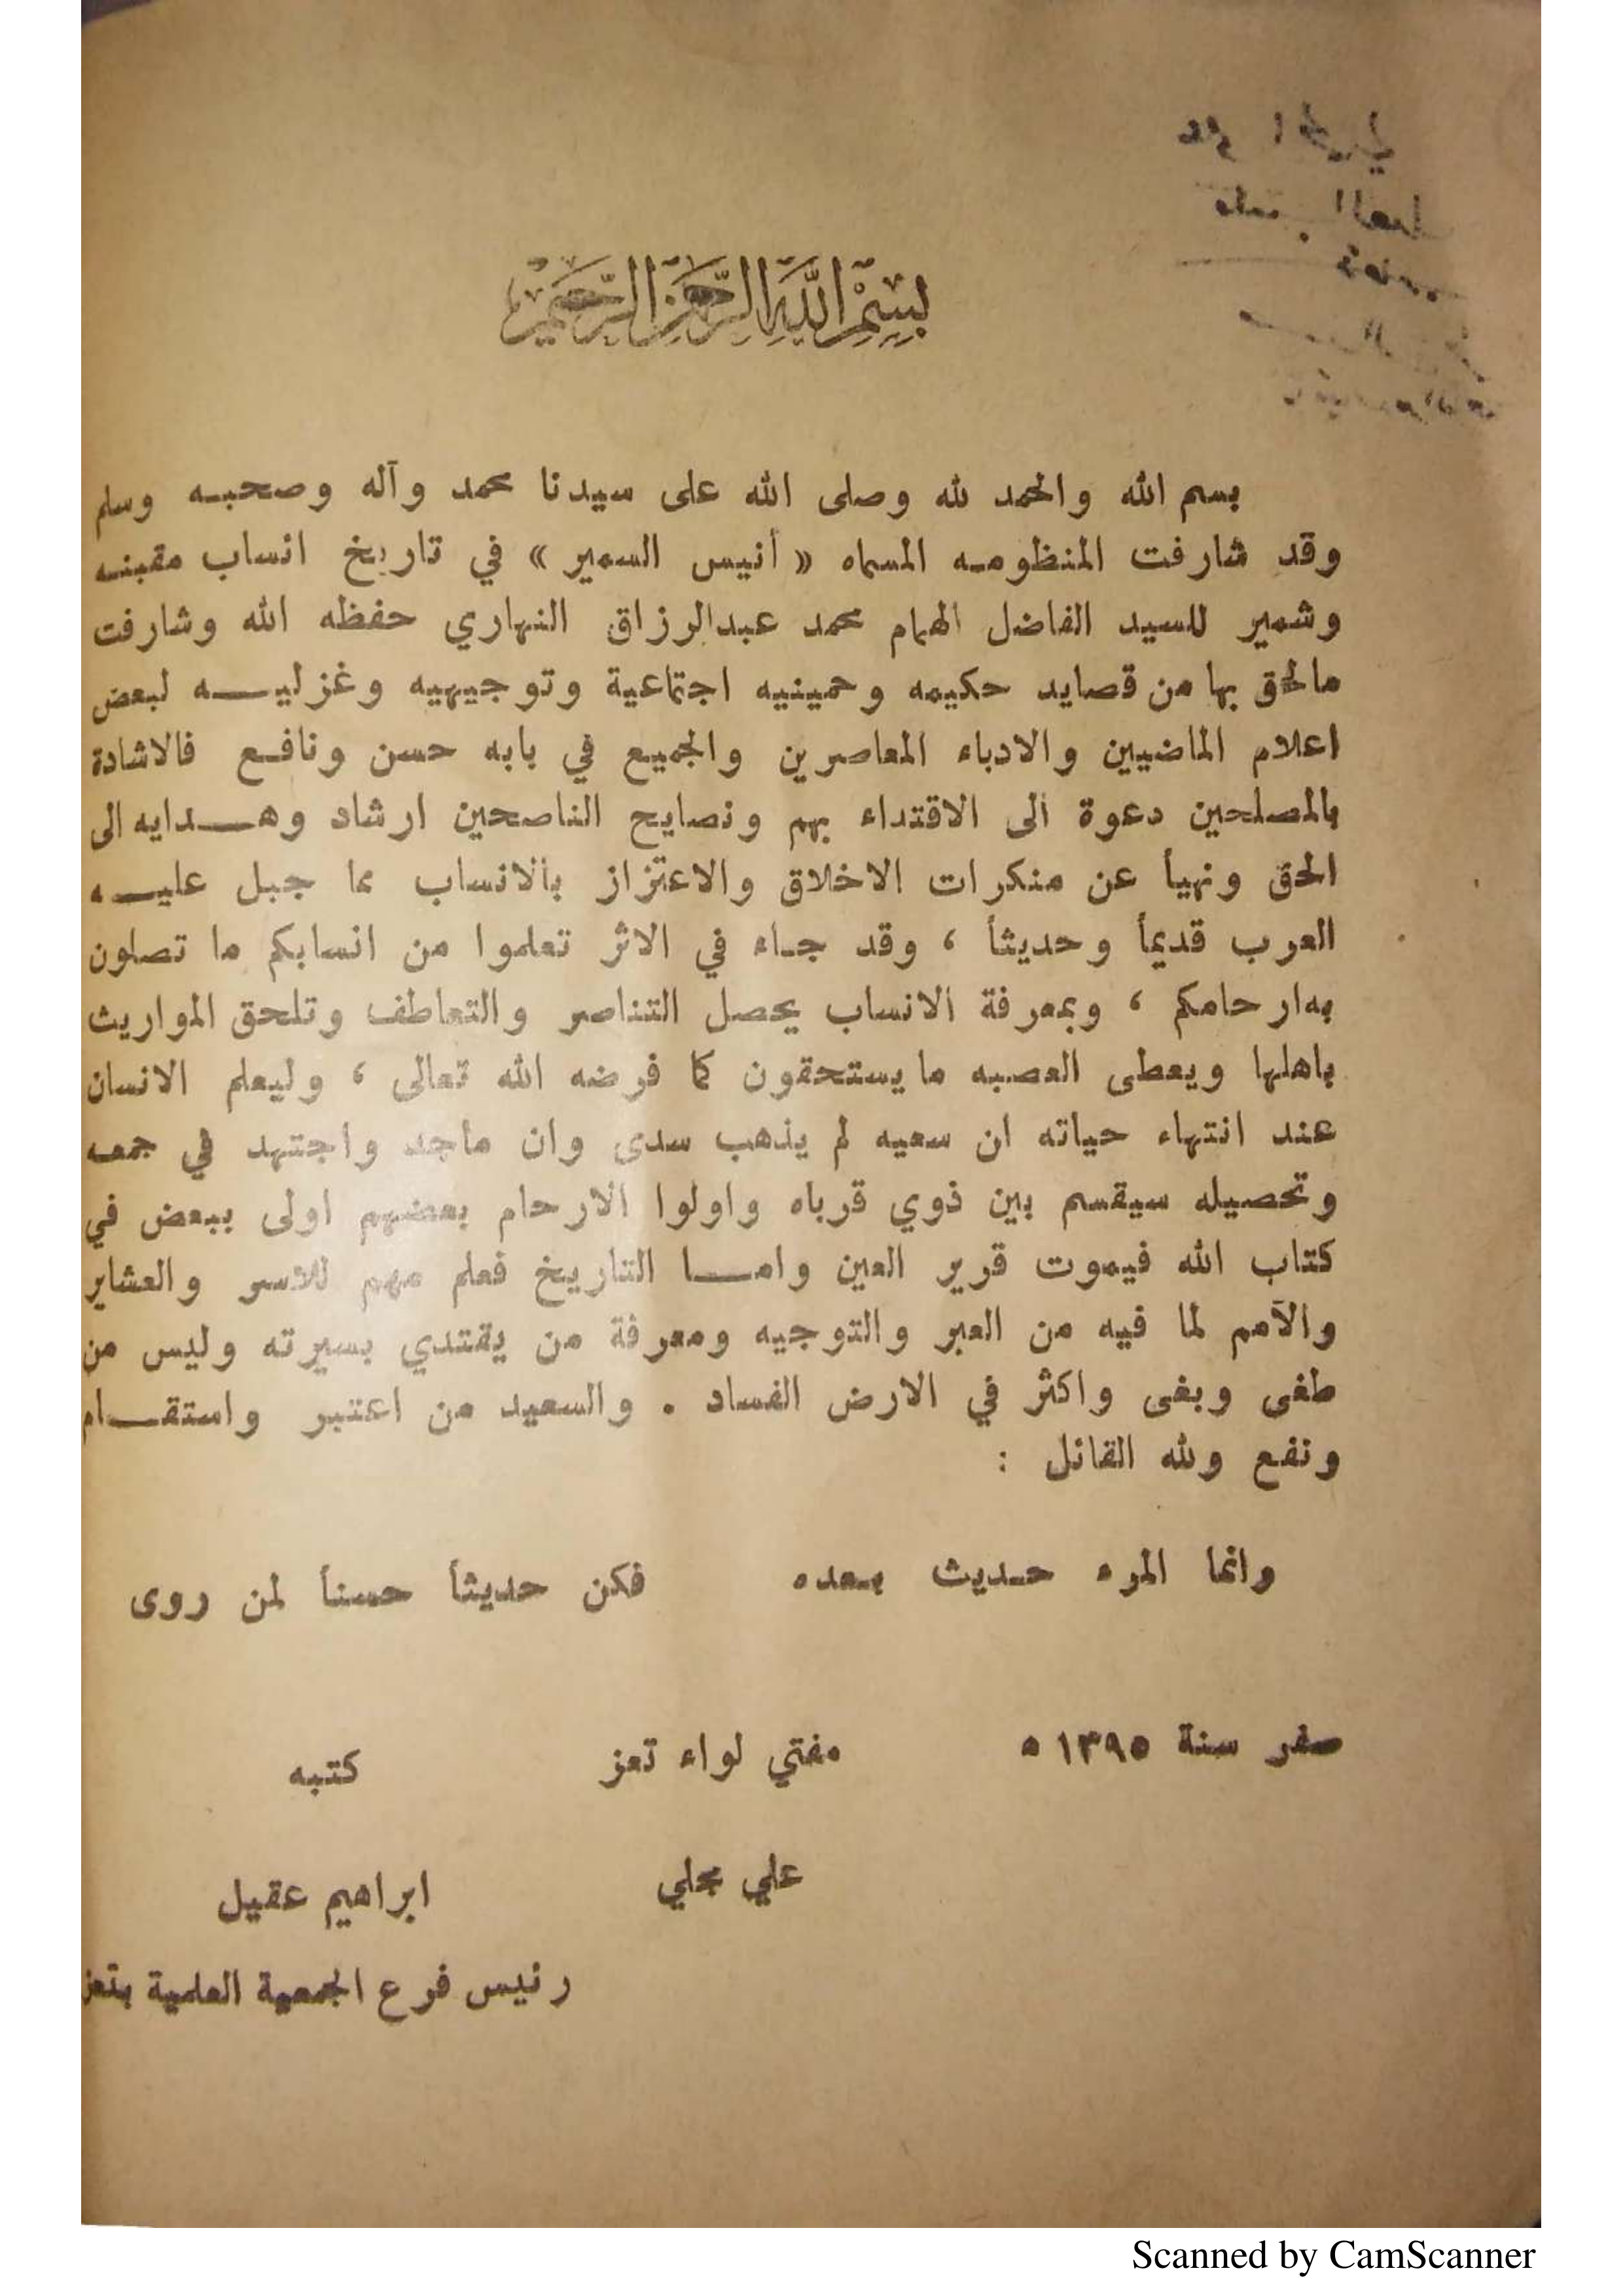 بسم الله الرحمن الرحيم
بسم الله والحمد لله وصلى الله على سيدنا محمد وآله وصحبه وسلم
وقد شارفت المنظومه المسماه « أنيس السمير » في تاريخ انساب مقبنه
وشمير للسيد الفاضل الهمام محمد عبدالرزاق النهاري حفظه الله وشارفت
مالحق بها من قصايد حكيمه وحمينيه اجتماعية وتوجيهيه وغزليه لبعض
اعلام الماضيين والادباء المعاصرين والجميع في بابه حسن ونافع فالاشادة
بالمصلحين دعوة الى الاقتداء بهم ونصايح الناصحين ارشاد وهدايه الى
الحق ونهيأ عن منكرات الاخلاق والاعتزاز بالانساب مما جبل عليه
العرب قديمأ وحديثأ ، وقد جاء في الاثر تعلموا من انسابكم ما تصلون
به ارحامكم ، وبمعرفة الانساب يحصل التناصر والتعاطف وتلحق المواريث
باهلها ويعطى العصبه ما يستحقون كما فرضه الله تعالى ، وليعلم الانسان
عند انتهاء حياته ان سعيه لم يذهب سدى وان ماجد واجتهد في جمعه
وتحصيله سيقسم بين ذوي قرباه واولوا الارحام بعضهم اولى ببعض في
كتاب الله فيموت قرير العين واما التاريخ فعلم مهم للاسر والعشاير
والأمم لما فيه من العبر والتوجيه ومعرفة من يقتدي بسيرته وليس من
طغى وبغى واكثر في الارض الفساد . والسعيد من اعتبر واستقام
ونفع ولله القائل :
وانما المرء حديث بعده فكن حديثأ حسنأ لمن روى
صفر سنة ١٣٩٥ ه مفتي لواء تعز كتبه
علي مجلي ابراهيم عقيل
رئيس فرع الجمعية العلمية بتعز
Scanned by CamScanner